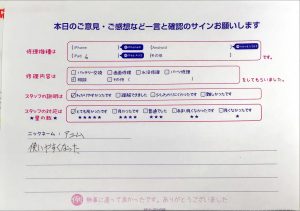 本日のご意見・ご感想など一言と確認のサインお願いします
修理機種は
iPhone
Android
iPad 6
その他
修理内容は
バッテリー交換 画面修理 水没修理 パーツ修理
その他
をしてもらいました。
スタッフの説明は
わかりやすかったです 理解できました 少しわかりにくかったです 難しかったです
スタッフの対応は
★星の数★
とても良かったです 良かったです 普通でした あまり良くなかったです 良くなかったです
★★★★★ ★★★★ ★★★ ★★ ★
ニックネーム：
使いやすくなった
無事に直って良かったです。ありがとうございました